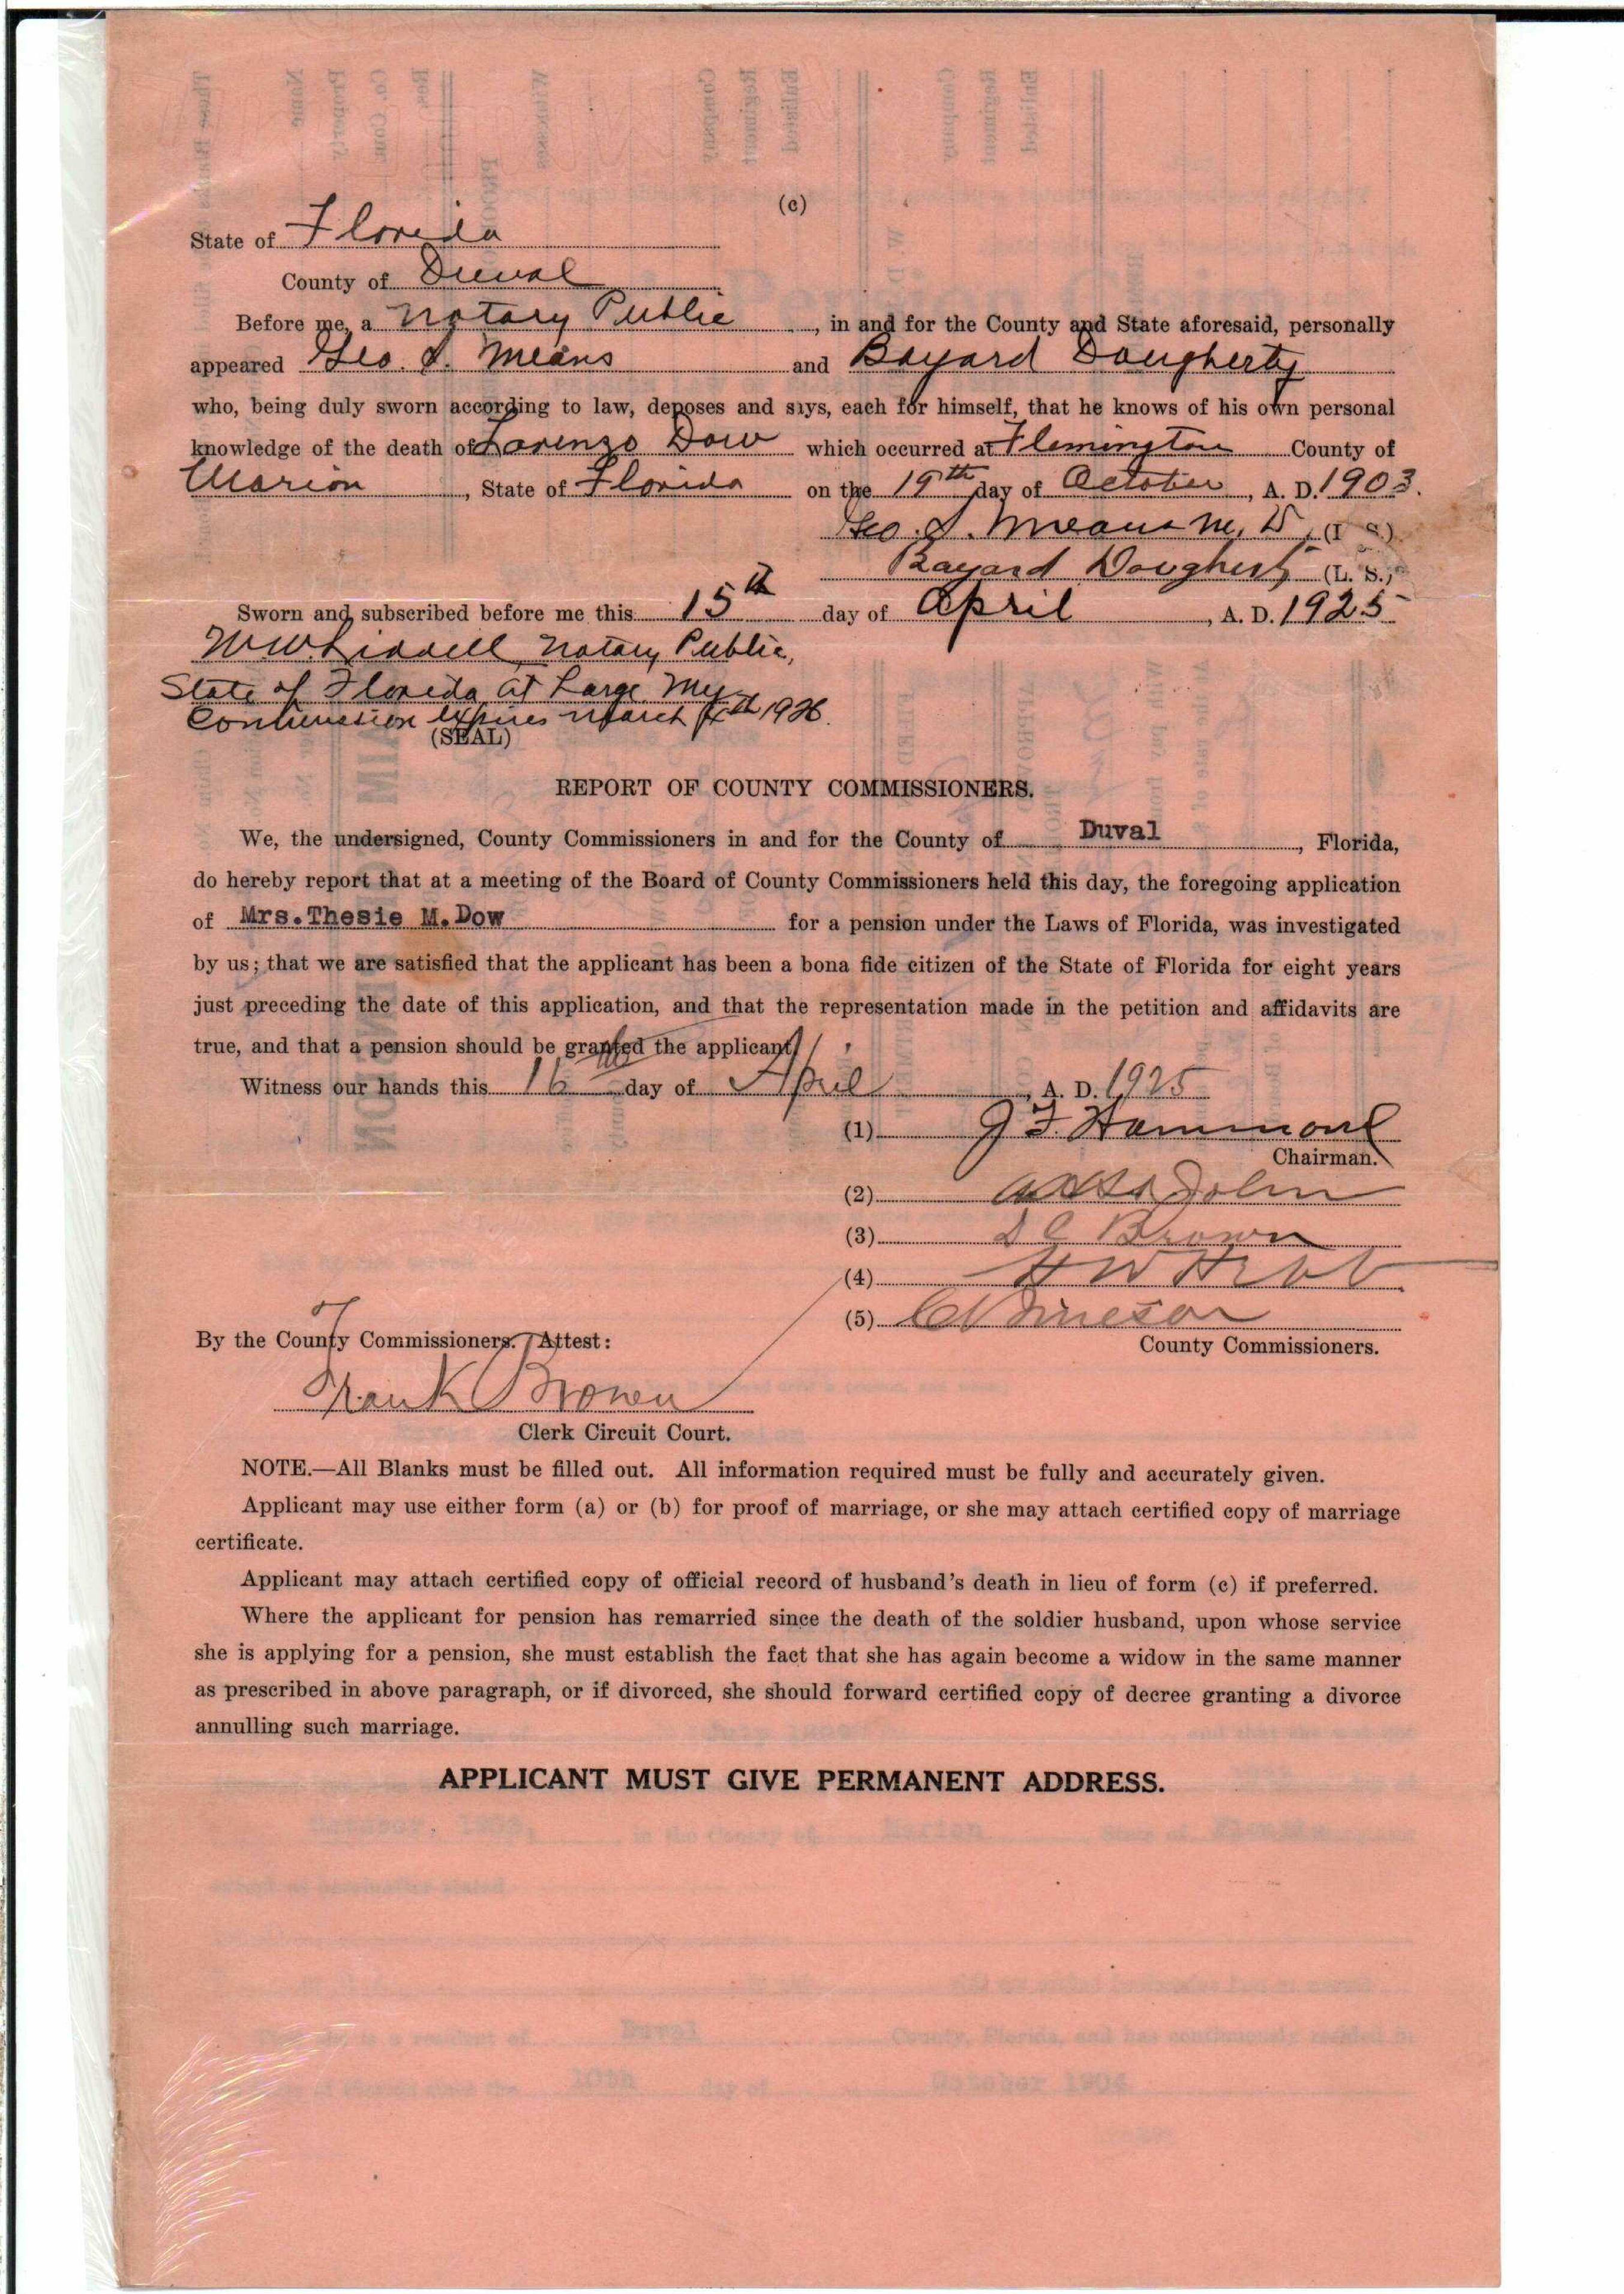 (c)
State of Florida
County of Duval
Before me, a Notary Public, in and for the County and State aforesaid, personally
appeared Geo. S. Means and Bayard Dougherty
who, being duly sworn according to law, deposes and says, each for himself, that he knows of his own personal
knowledge of the death of Lorenzo Dow which occurred at Flemington County of
Marion, State of Florida on the 19th day of October, A. D. 1903.
Geo. S. Means M, D, (L. S.)
Bayard Dougherty (L. S.)
Sworn and subscribed before me this 15th day of April, A. D. 1925
Notary Public,
State of Florida at Large My
Commission Expires March 1926.
(SEAL)
REPORT OF COUNTY COMMISSIONERS.
We, the undersigned, County Commissioners in and for the County of Duval, Florida,
do hereby report that at a meeting of the Board of County Commissioners held this day, the foregoing application
of Mrs.Thesie M.Dow for a pension under the Laws of Florida, was investigated
by us; that we are satisfied that the applicant has been a bona fide citizen of the State of Florida for eight years
just preceding the date of this application, and that the representation made in the petition and affidavits are
true, and that a pension should be granted the applicant
Witness our hands this 16 day of April, A. D. 1925
(1) J F. Hammond
Chairman.
(2)
(3) Brown
(4) H W
(5)
County Commissioners.
By the County Commissioners. Attest:
Frank Brown
Clerk Circuit Court.
NOTE.—All Blanks must be filled out. All information required must be fully and accurately given.
Applicant may use either form (a) or (b) for proof of marriage, or she may attach certified copy of marriage
certificate.
Applicant may attach certified copy of official record of husband's death in lieu of form (c) if preferred.
Where the applicant for pension has remarried since the death of the soldier husband, upon whose service
she is applying for a pension, she must establish the fact that she has again become a widow in the same manner
as prescribed in above paragraph, or if divorced, she should forward certified copy of decree granting a divorce
annulling such marriage.
APPLICANT MUST GIVE PERMANENT ADDRESS.